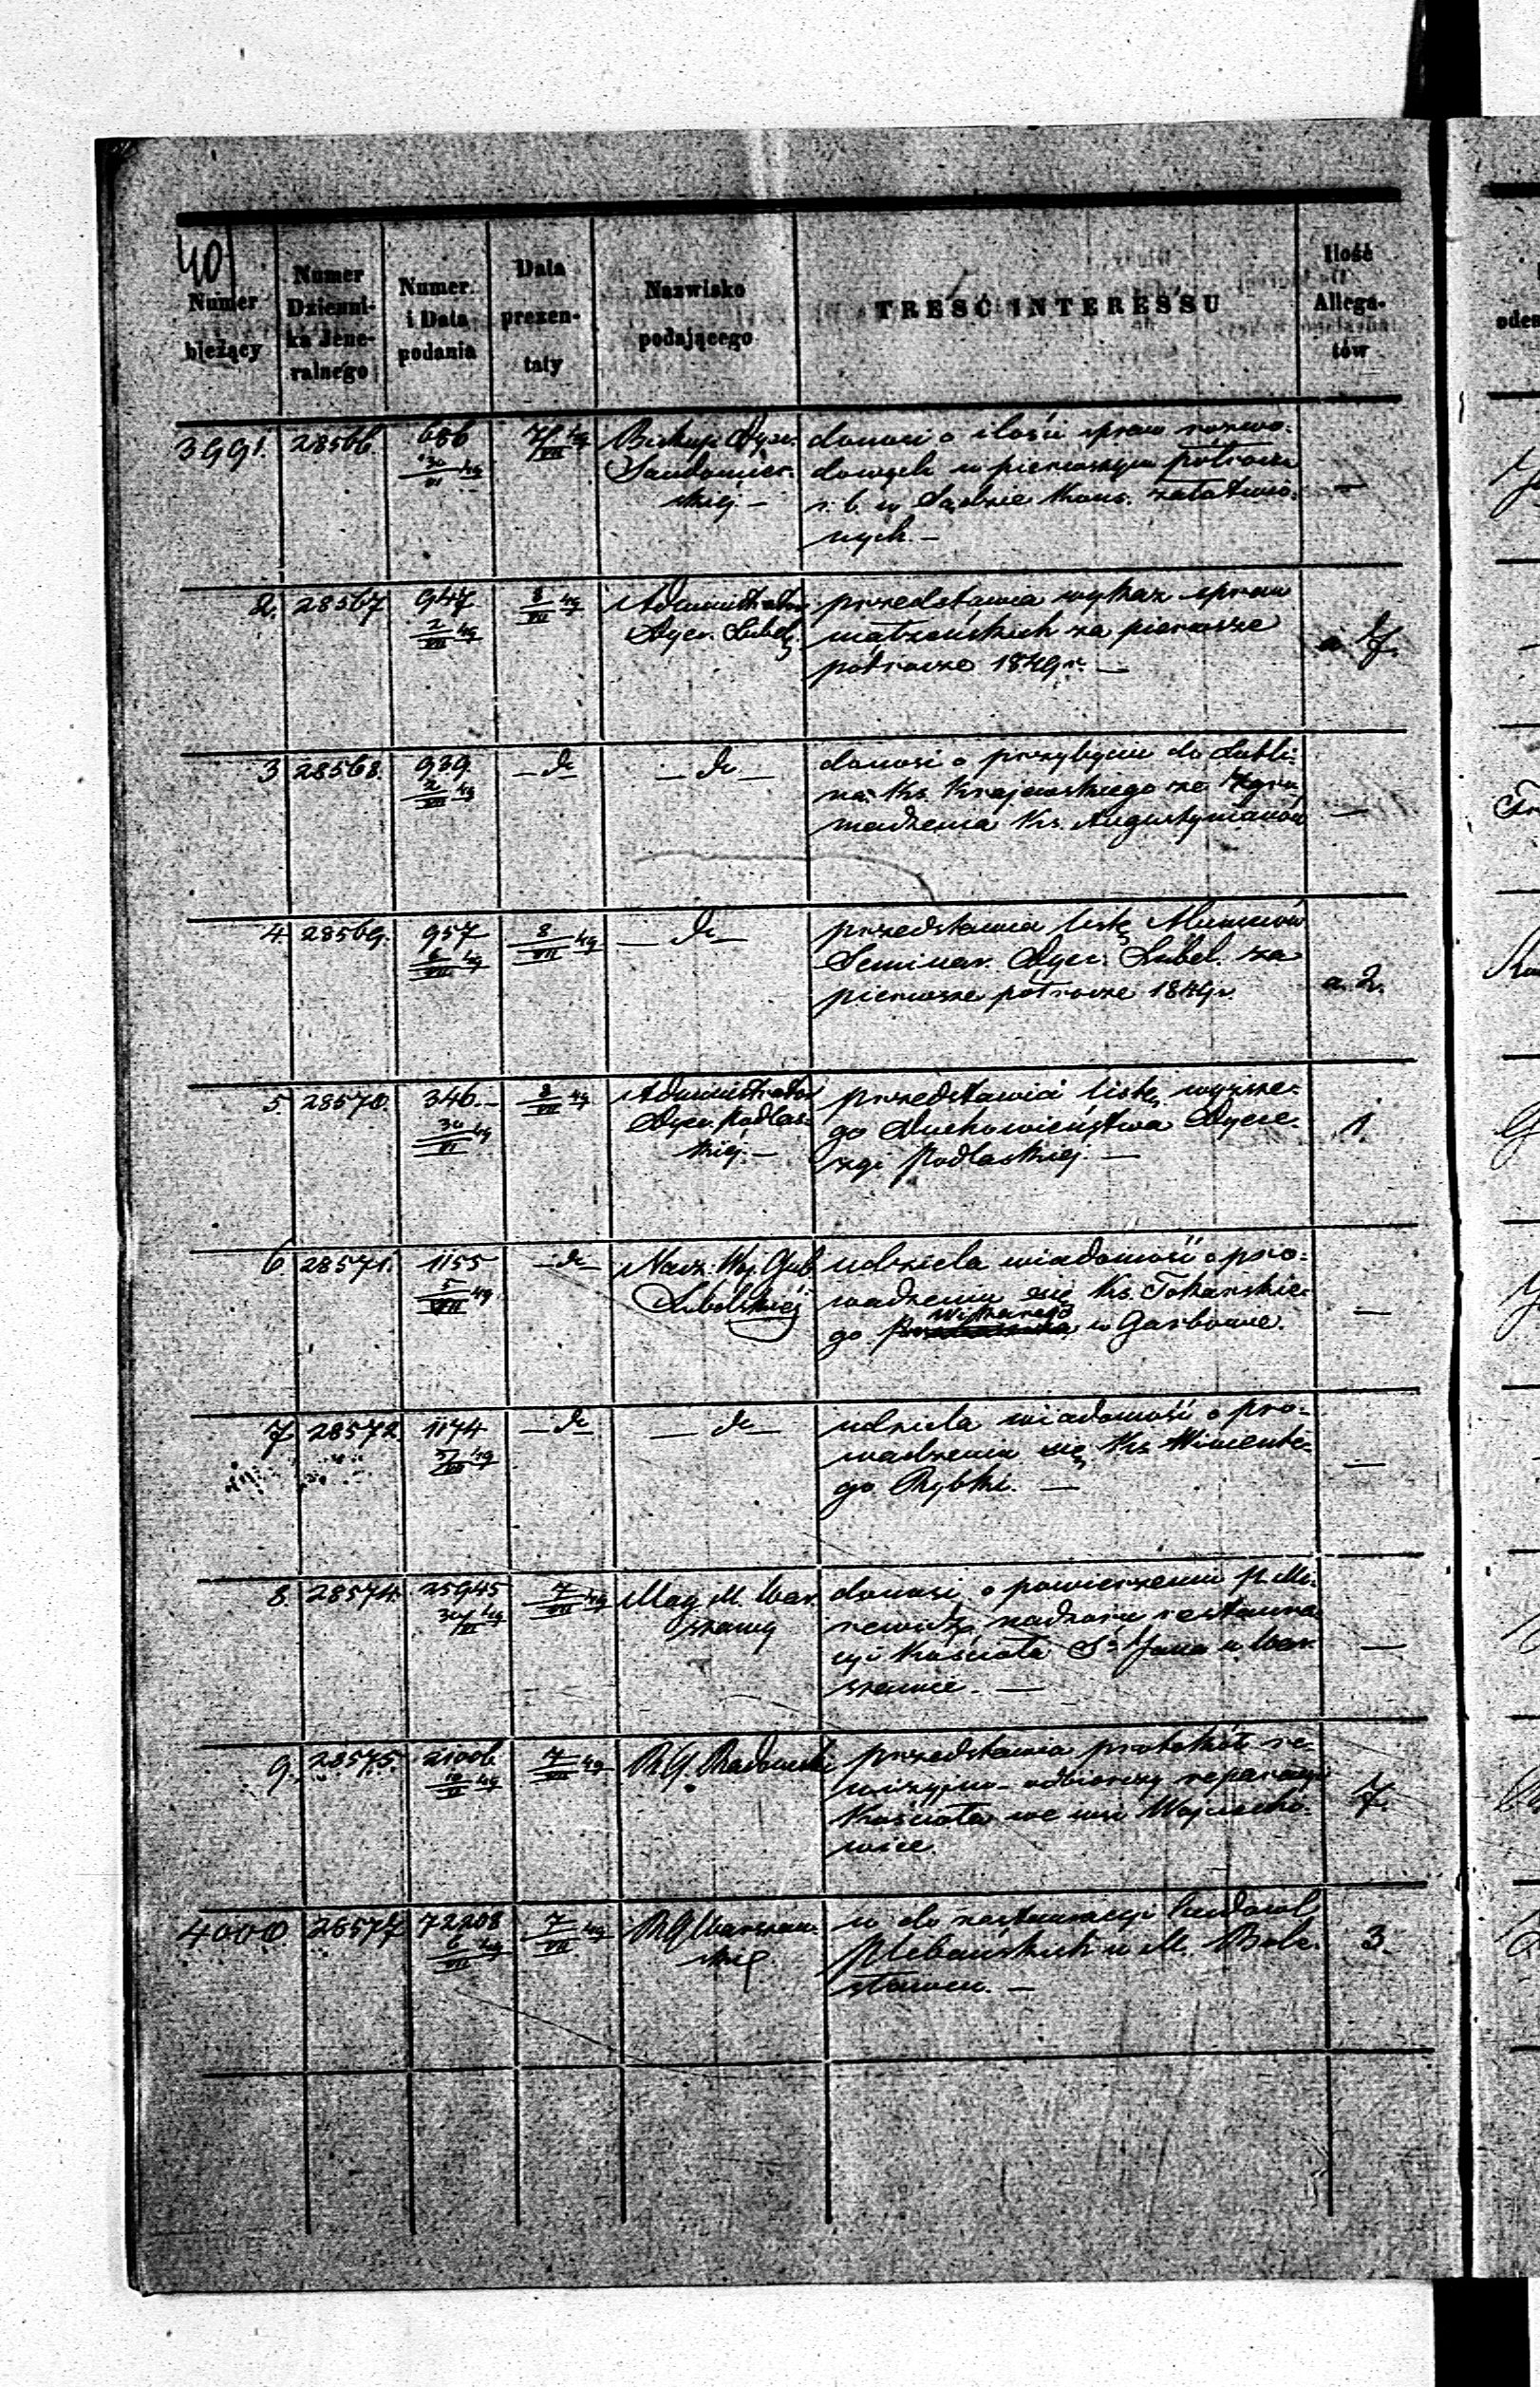 401
Numer bieżący
Numer Dzienni-ka Jene-ralnego
Numer i Data podania
Data prezen-taty
Nazwisko podającego
TREŚĆ INTERESSU
Ilość Allega-tów
3991. 28566. 686 30/VI 49 7/VII 49 Biskup Dyec. donosi o ilości spraw rozwo-
Sandomier- dowych w pierwszym półroczu —
skiej. — r. b. w Sądzie Kons. załatwio-
nych. —
2. 28567 947 2/VII 49 8/VII 49 Administrator przedstawia wykaz spraw
Dyec. Lubel. małżeńskich za pierwsze a 7.
półrocze 1849 r. —
3 28568. 939. 2/VII 49 — do — — do — donosi o przybyciu do Lubli-
na Ks. Krajewskiego ze Zgro-
madzenia Ks. Augustyanów —
4. 28569. 957 6/VII 49 8/VII 49 — do — przedstawia listę Alumnów
Seminar. Dyec. Lubel. za
pierwsze półrocze 1849 r. a. 2.
5 28570. 346. — 30/VI 49 8/VII 49 Administrator przedstawia listę wyższe-
Dyec. Podlas- go Duchowieństwa Dyece- 1.
kiej. — zyi Podlaskiej. —
6. 28571. 1155 5/VII 49 — do — Nacz: Woj. Gub udziela wiadomość o pro-
Lubelskiej wadzeniu się Ks. Tokarskie- —
Wikarego
go w Garbowie.
7 28572. 1174 5/VII 49 — do — — do — udziela wiadomość o pro-
wadzeniu się Ks. Wincente- —
go Rybki. —
8. 28574. 25945 30/VI 49 7/VII 49 Mag. M. War- donosi o powierzeniu p.
szawy nadzoru restaura-
cyi Kościoła Sgo Jana w War- —
szawie. —
9. 28575. 21006 7/VII 49 R. G. Radomski przedstawia protokół re-
wizyjno-odbiorczy reparacyi
Kościoła we wsi Wojciecho- 7.
wice.
4000 28577 72208 6/VII 49 7/VII 49 R. G. Warszaw- w do restauracyi budowl
ski plebańskich w M. Bole- 3.
sławcu. —